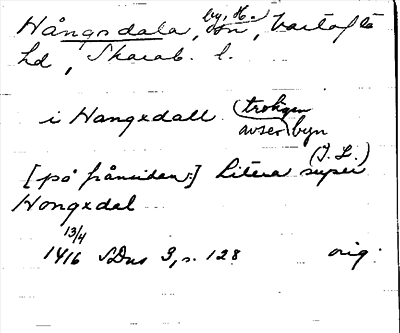 Hångsdala, by, H. o. sn, Vartofta
hd, Skarab. l.
i Hangxdall (troligen
avser byn
(J. L.)
[på frånsidan:] Litera super
Hongxdal
13/4
1416 SDns 3, s. 128 orig.